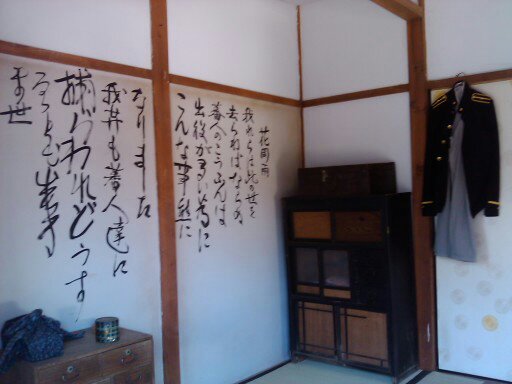 花岡両
我等は此の世を
去らねばならぬ
蕃人のこうふんは
出役が多い為に
こんな事件に
なりました
我等も蕃人達に
捕らわれどうす
ることも出来
ま世